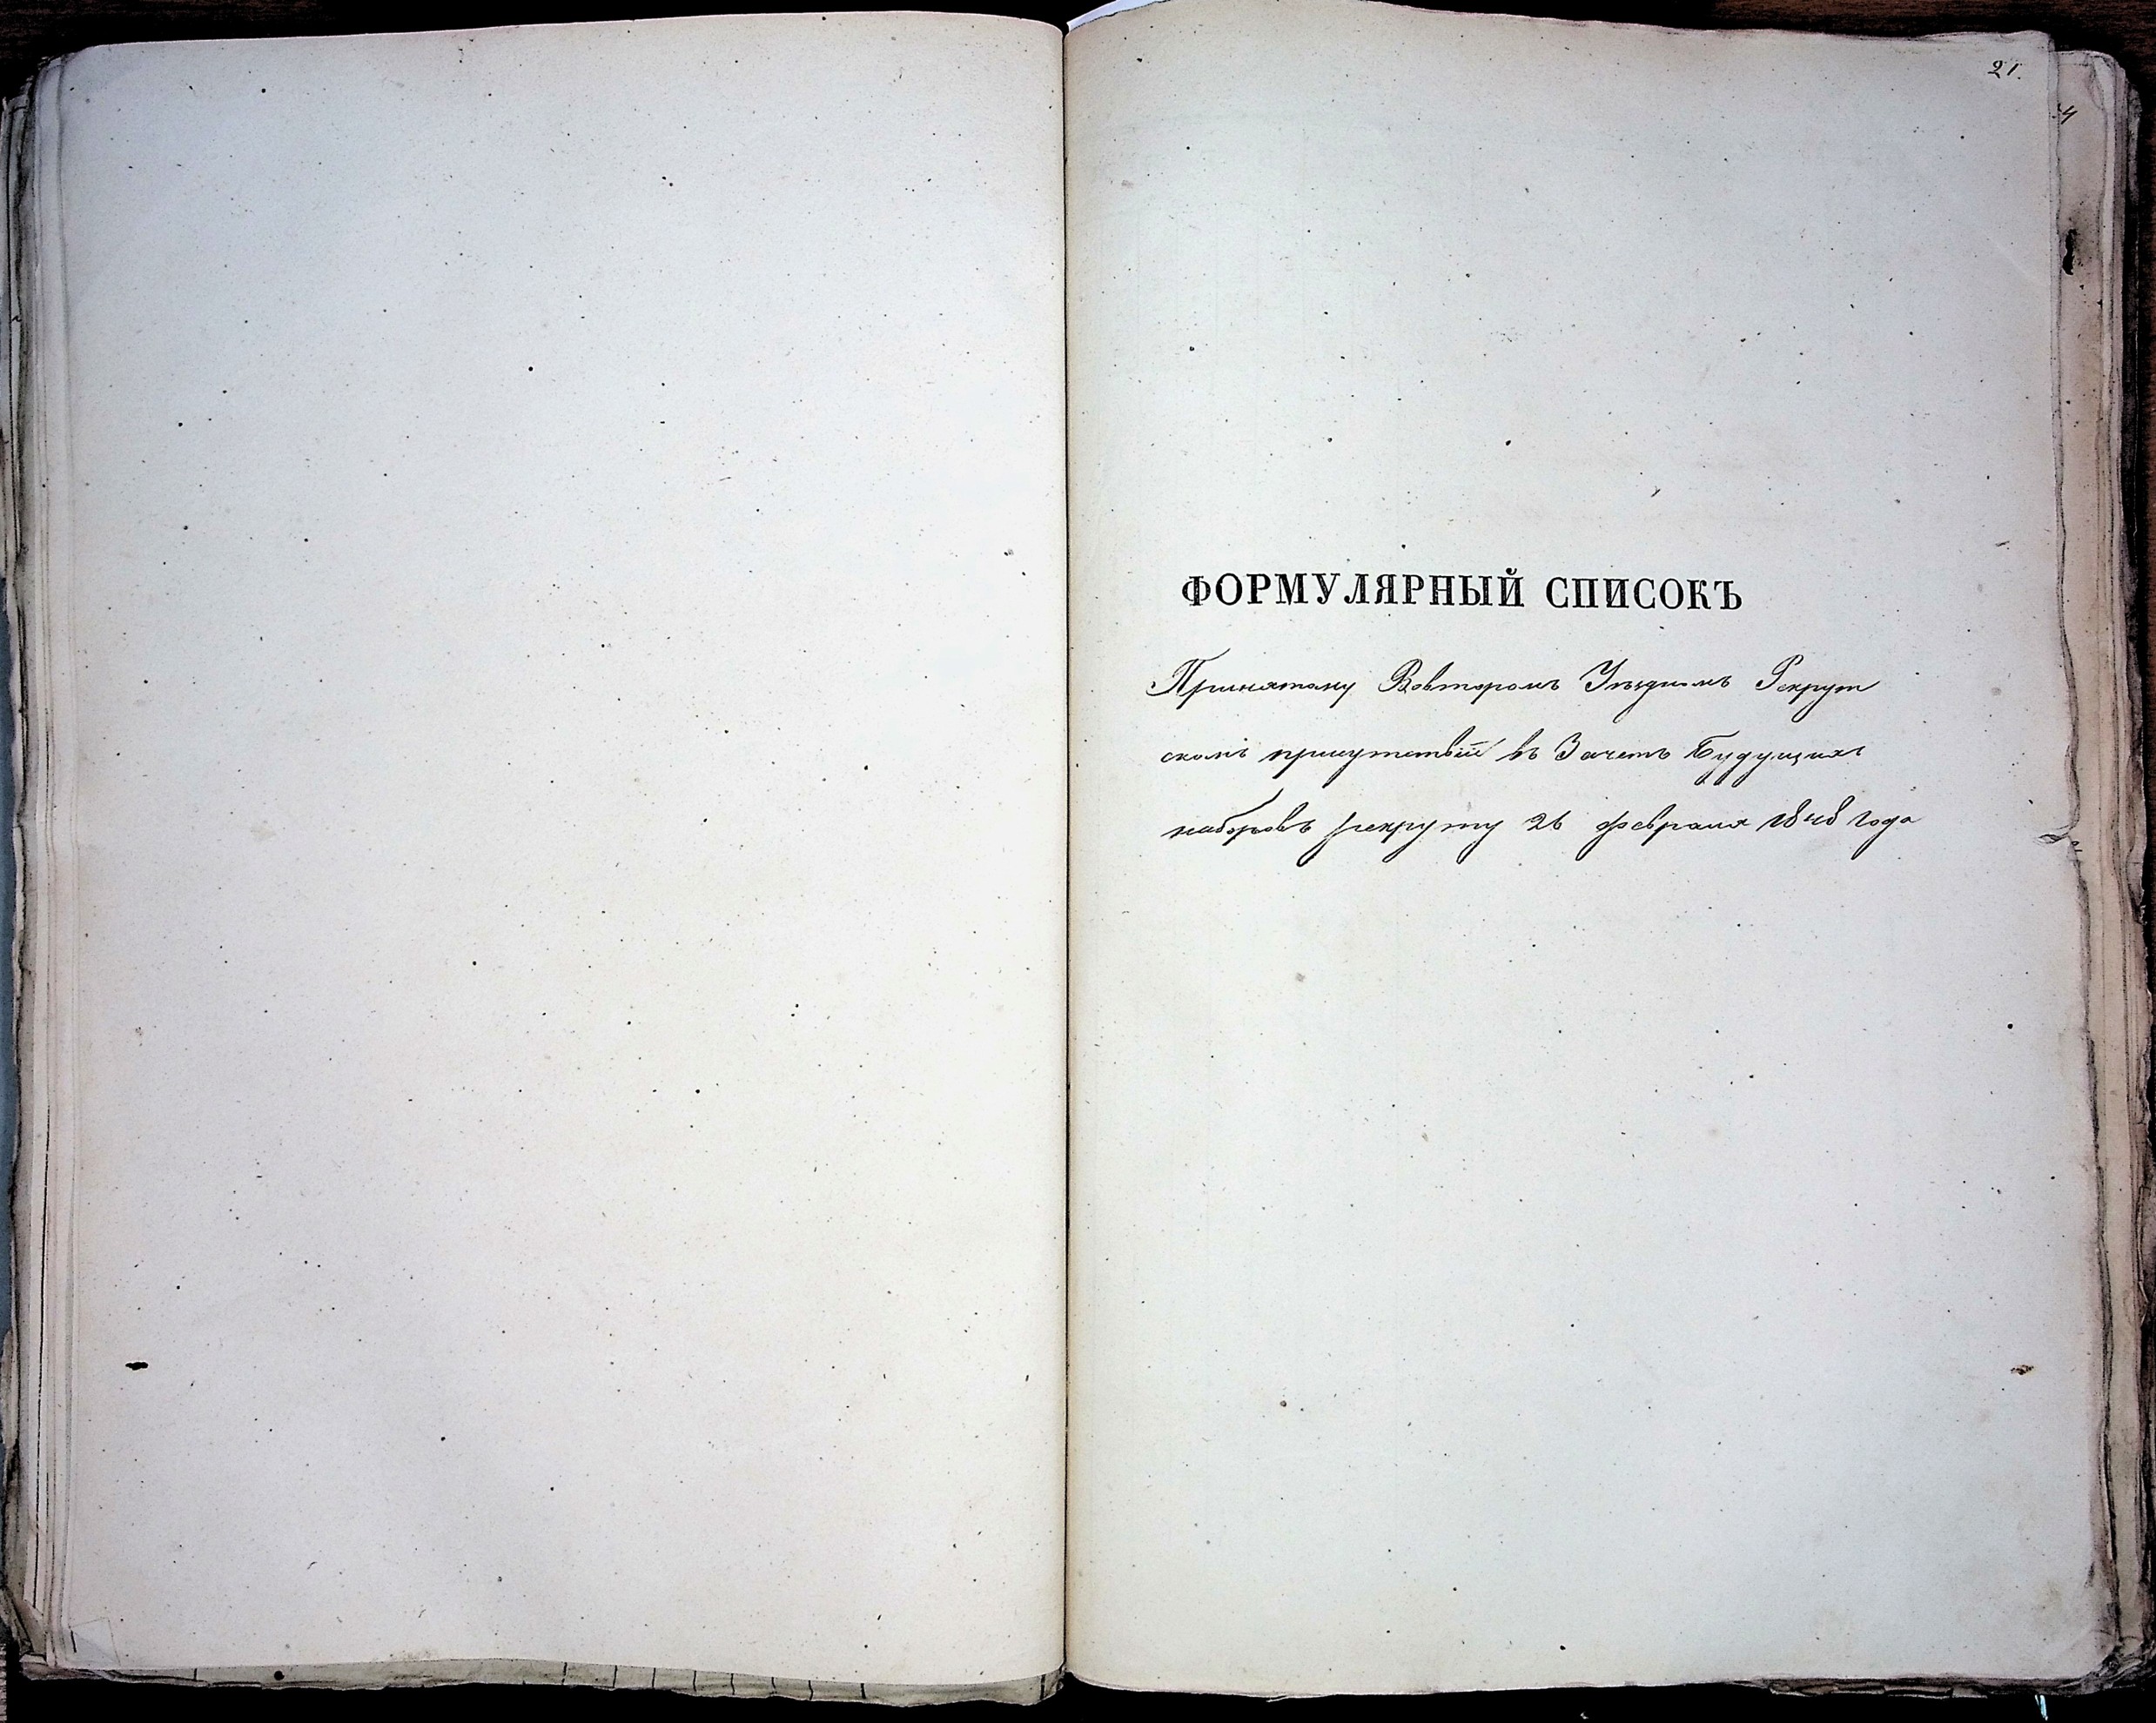 21.
ФОРМУЛЯРНЫЙ СПИСОКЪ
Принятому Вовторомъ Уѣздномъ Рекрут
скомъ присутствіи въ Зачетъ Будущихъ
наборовъ рекруту 26 февраля 1848 года